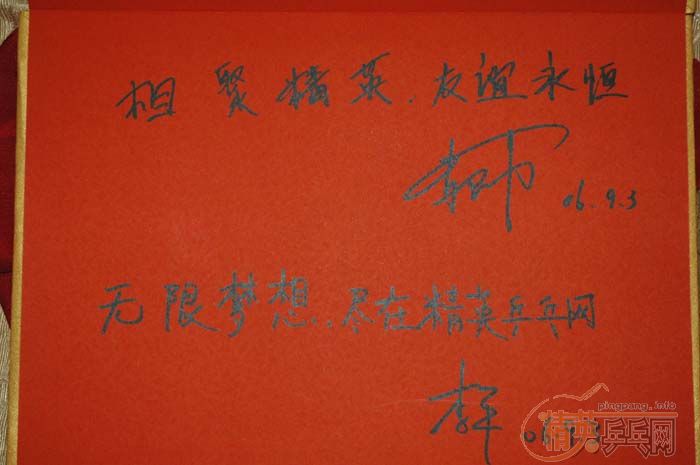 相聚精英.友谊永恒
06.9.3
无限梦想..尽在精英乒乓网
06.9.3
pingpang.info
精英乒乓网